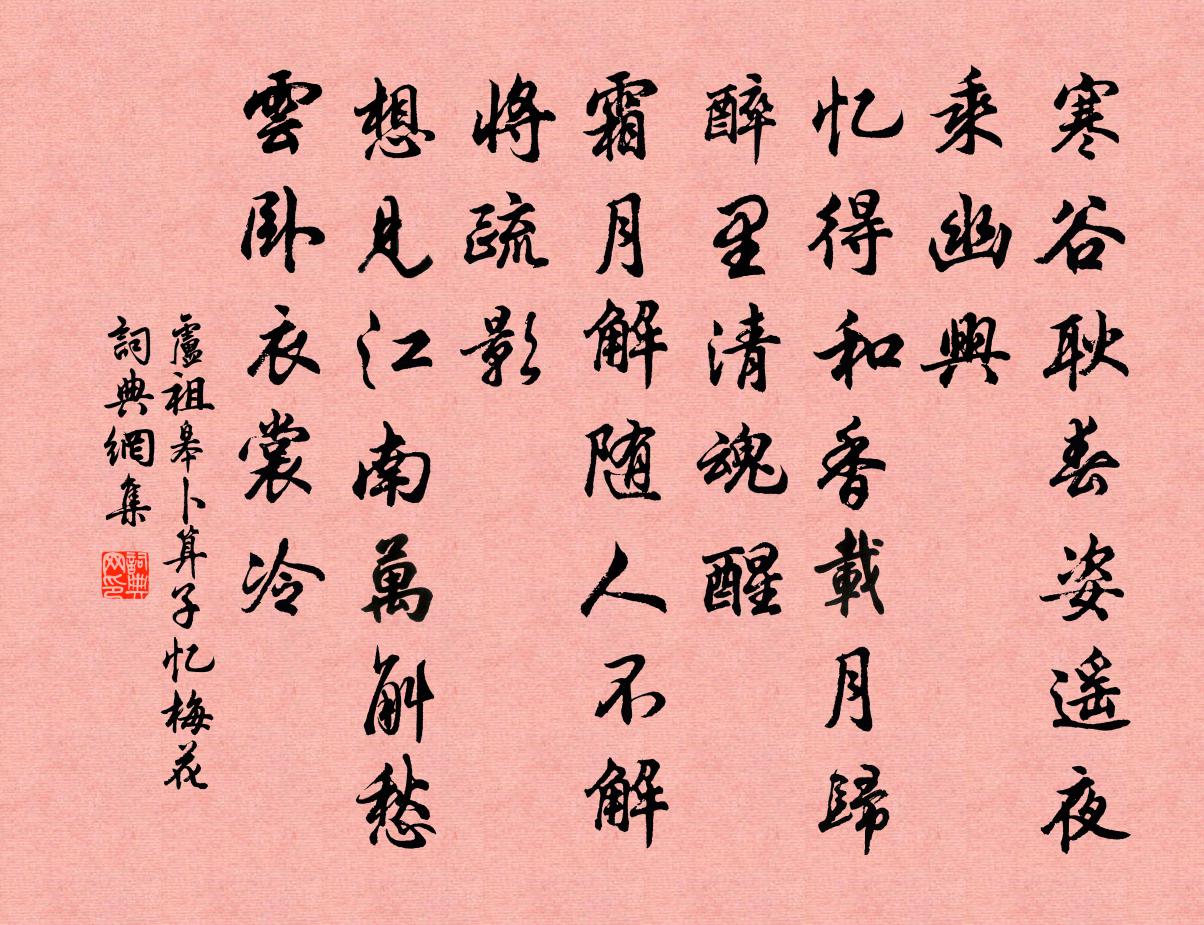 寒谷耿春姿遥夜
乘幽興
忆得和香載月歸
醉里清魂醒
霜月解随人不解
將疏影
想見江南萬斛愁
雲卧衣裳冷
盧祖皋卜算子忆梅花
詞典網集
詞典网印